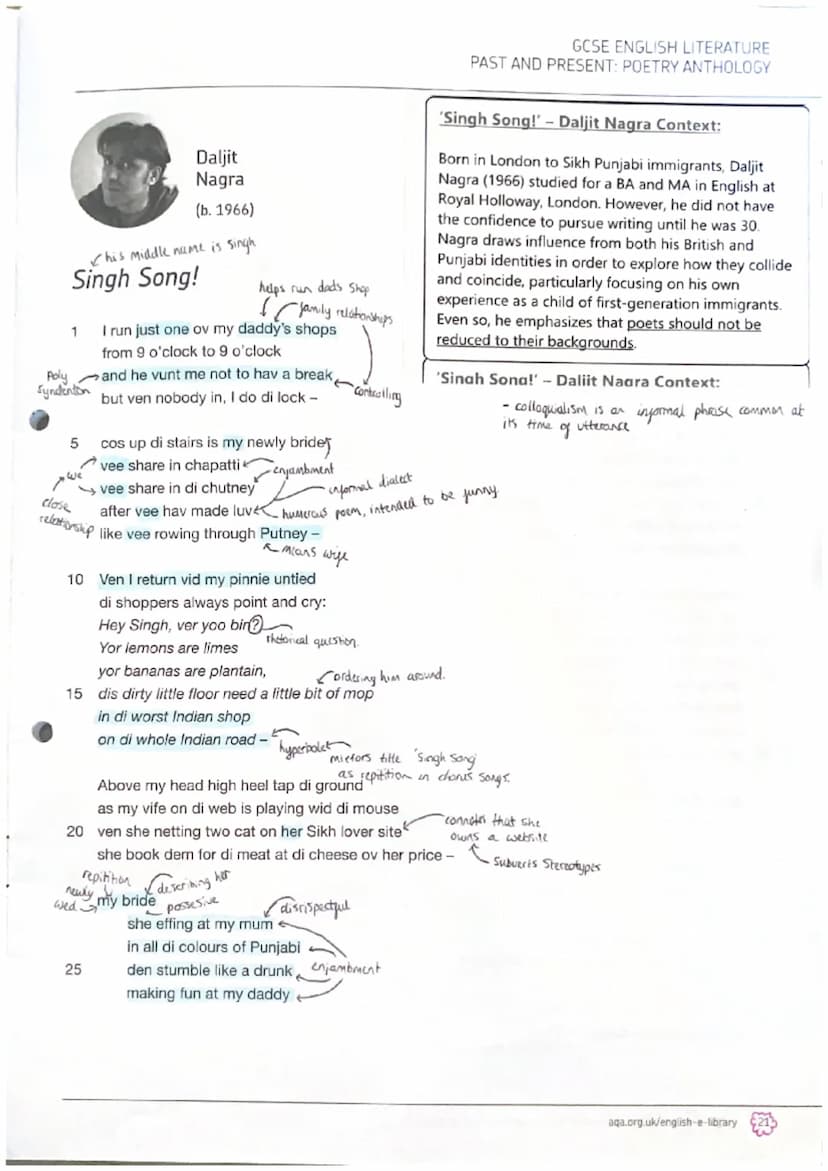 GCSE ENGLISH LITERATURE
PAST AND PRESENT: POETRY ANTHOLOGY
Daljit
Nagra
(b. 1966)
'Singh Song!' – Daljit Nagra Context:
Born in London to Sikh Punjabi immigrants, Daljit
Nagra (1966) studied for a BA and MA in English at
Royal Holloway, London. However, he did not have
the confidence to pursue writing until he was 30.
Nagra draws influence from both his British and
Punjabi identities in order to explore how they collide
and coincide, particularly focusing on his own
experience as a child of first-generation immigrants.
Even so, he emphasizes that poets should not be
reduced to their backgrounds.
'Singh Song!' – Daljit Nagra Context:
- colloquialism is an informal phrase common at
its time of utterance
his middle name is singh
Singh Song!
helps run dads shop
family relationships
1 I run just one ov my daddy's shops
from 9 o'clock to 9 o'clock
Poly
syndenton
and he vunt me not to hav a break
controlling
but ven nobody in, I do di lock –
5 cos up di stairs is my newly bride
we
vee share in chapatti
enjambment
vee share in di chutney
informal dialect
close
relationship
after vee hav made luv
humerous poem, intended to be funny
like vee rowing through Putney –
means wife
10 Ven I return vid my pinnie untied
di shoppers always point and cry:
Hey Singh, ver yoo bin?
rhetorical question.
Yor lemons are limes
yor bananas are plantain,
ordering him around.
15 dis dirty little floor need a little bit of mop
in di worst Indian shop
on di whole Indian road –
hyperbole
mirrors title 'Singh Song'
as repitition in chorus songs.
Above my head high heel tap di ground
as my vife on di web is playing wid di mouse
20 ven she netting two cat on her Sikh lover site
connotes that she
owns a website
she book dem for di meat at di cheese ov her price –
subverts stereotypes
repitition
newly
wed
describing her
my bride
possesive
disrispectful
she effing at my mum
in all di colours of Punjabi
25 den stumble like a drunk
enjambment
making fun at my daddy
aqa.org.uk/english-e-library
21